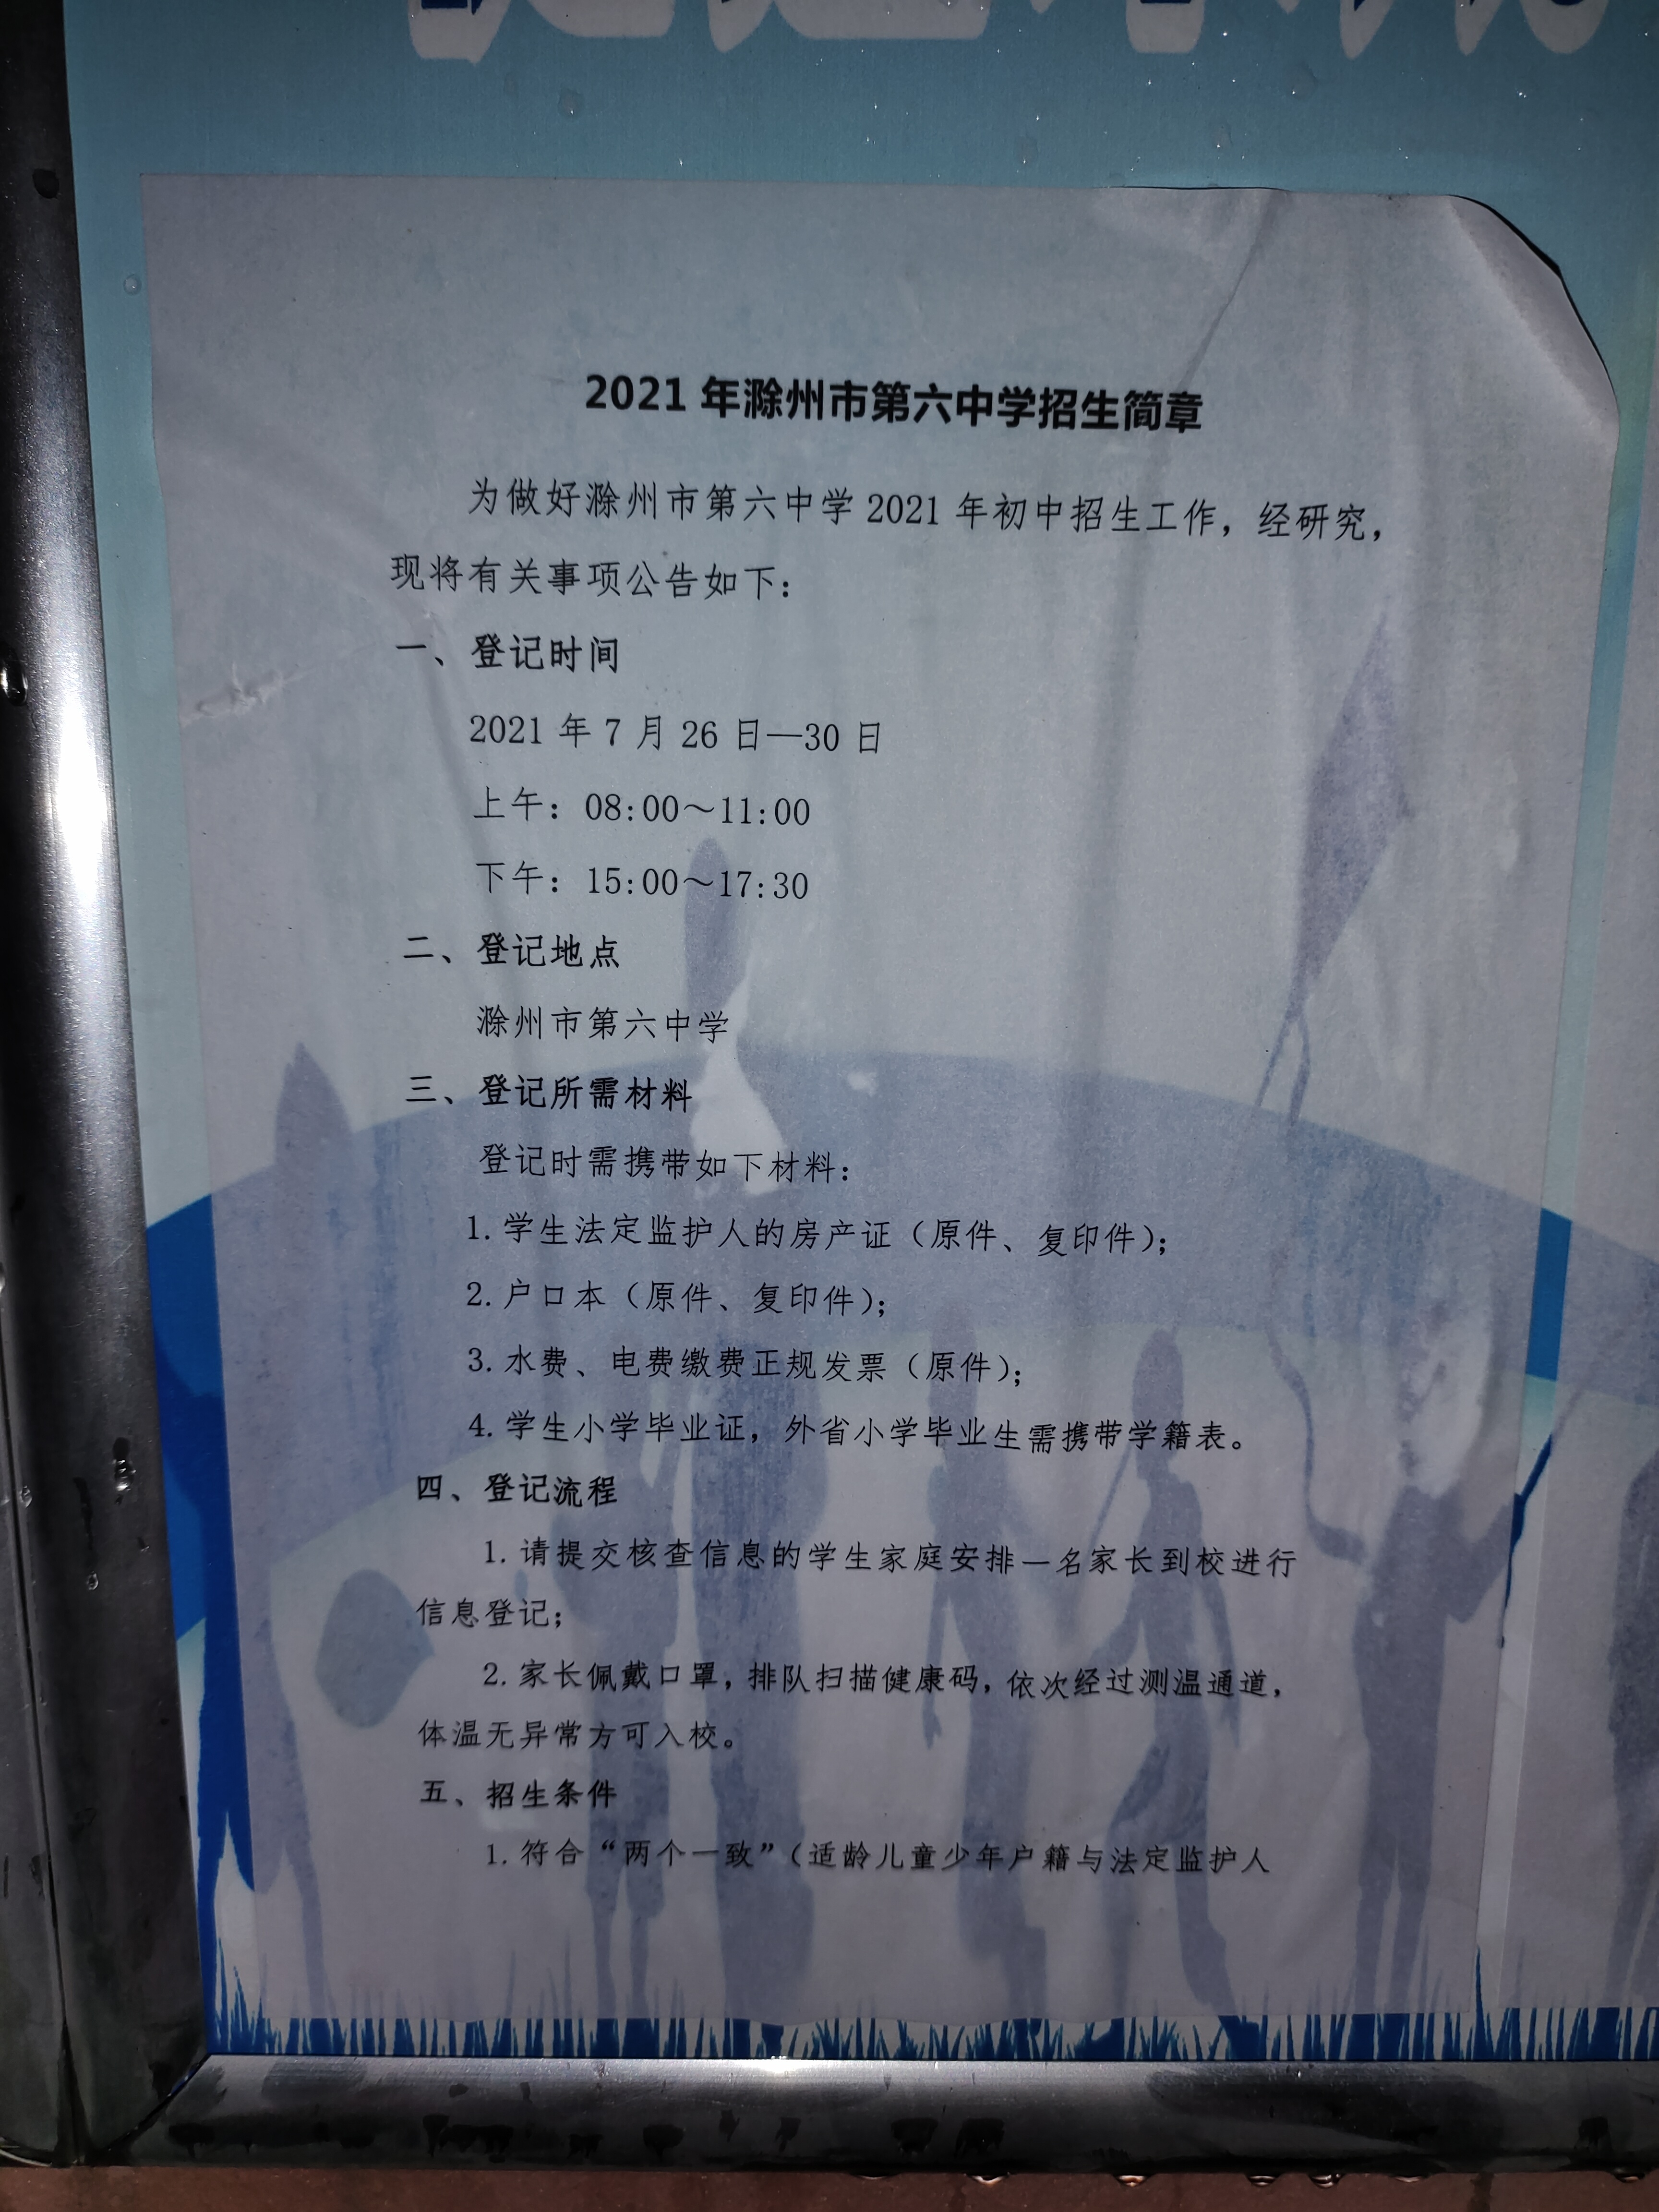 2021 年滁州市第六中学招生简章
为做好滁州市第六中学 2021 年初中招生工作，经研究，
现将有关事项公告如下：
一、登记时间
2021 年 7 月 26 日—30 日
上午：08:00～11:00
下午：15:00～17:30
二、登记地点
滁州市第六中学
三、登记所需材料
登记时需携带如下材料：
1. 学生法定监护人的房产证（原件、复印件）；
2. 户口本（原件、复印件）；
3. 水费、电费缴费正规发票（原件）；
4. 学生小学毕业证，外省小学毕业生需携带学籍表。
四、登记流程
1. 请提交核查信息的学生家庭安排一名家长到校进行
信息登记；
2. 家长佩戴口罩，排队扫描健康码，依次经过测温通道，
体温无异常方可入校。
五、招生条件
1. 符合“两个一致”（适龄儿童少年户籍与法定监护人